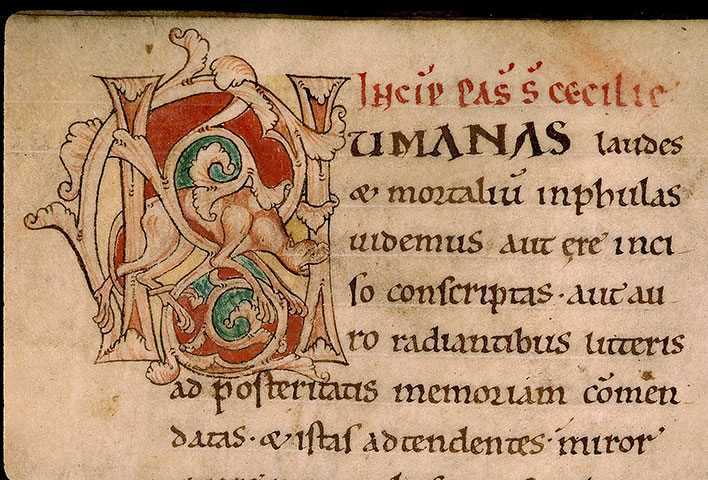 INCIP̄ PAS̄ S̄ CECILIE
HUMANAS laudes
& mortaliū inphulas
uidemus aut ęre inci
so conscriptas · aut au
ro radiantibus litteris
ad posteritatis memoriam cōmen
datas · & istas adtendentes · miror